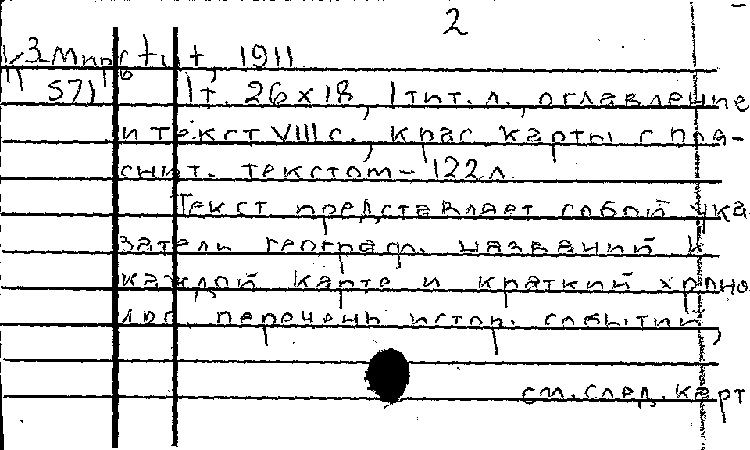 2
1911
571 1т. 26×18, 1 тит. л., оглавление
и текст VIII с., крас. карты с поя-
снит. текстом - 122 л
Текст представляет собой ука
затель географ. названий к
каждой карте и краткий хроно
лог. перечень истор. событий,
см. след. карт